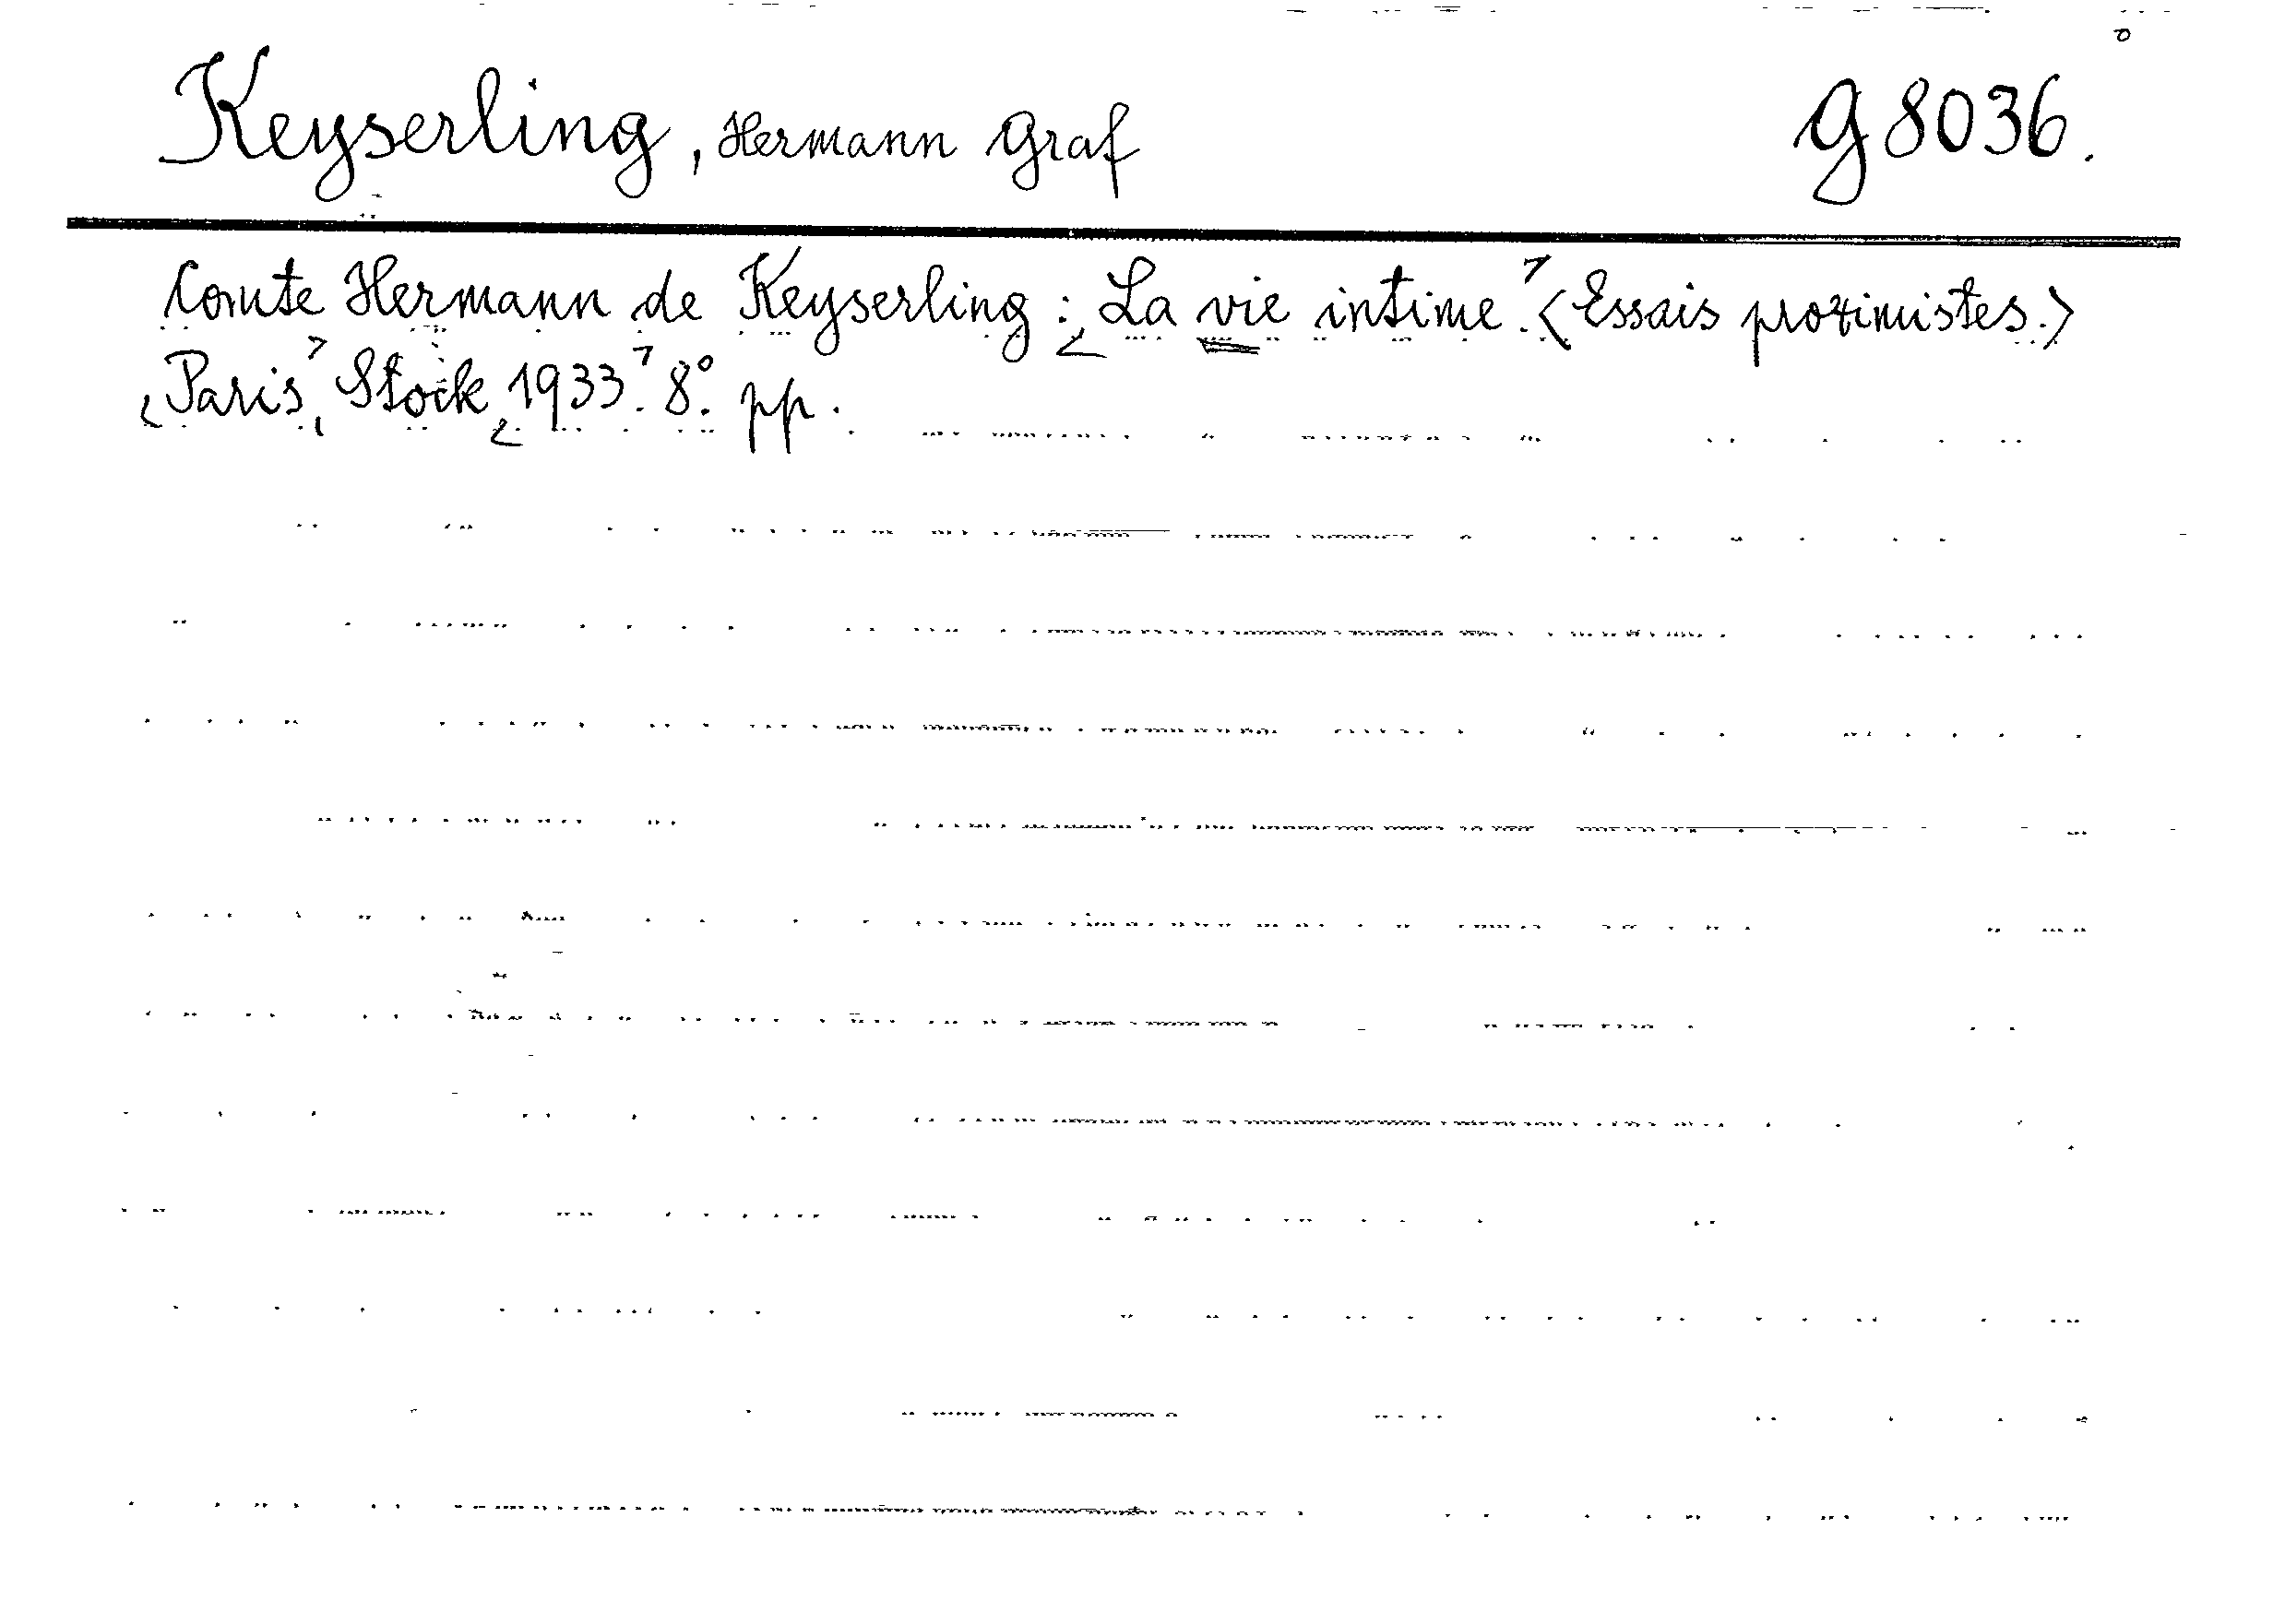 Keyserling, Hermann Graf g 8036.
Comte Hermann de Keyserling: La vie intime. <Essais proximistes.>
Paris, Stock 1933. 8°. pp.